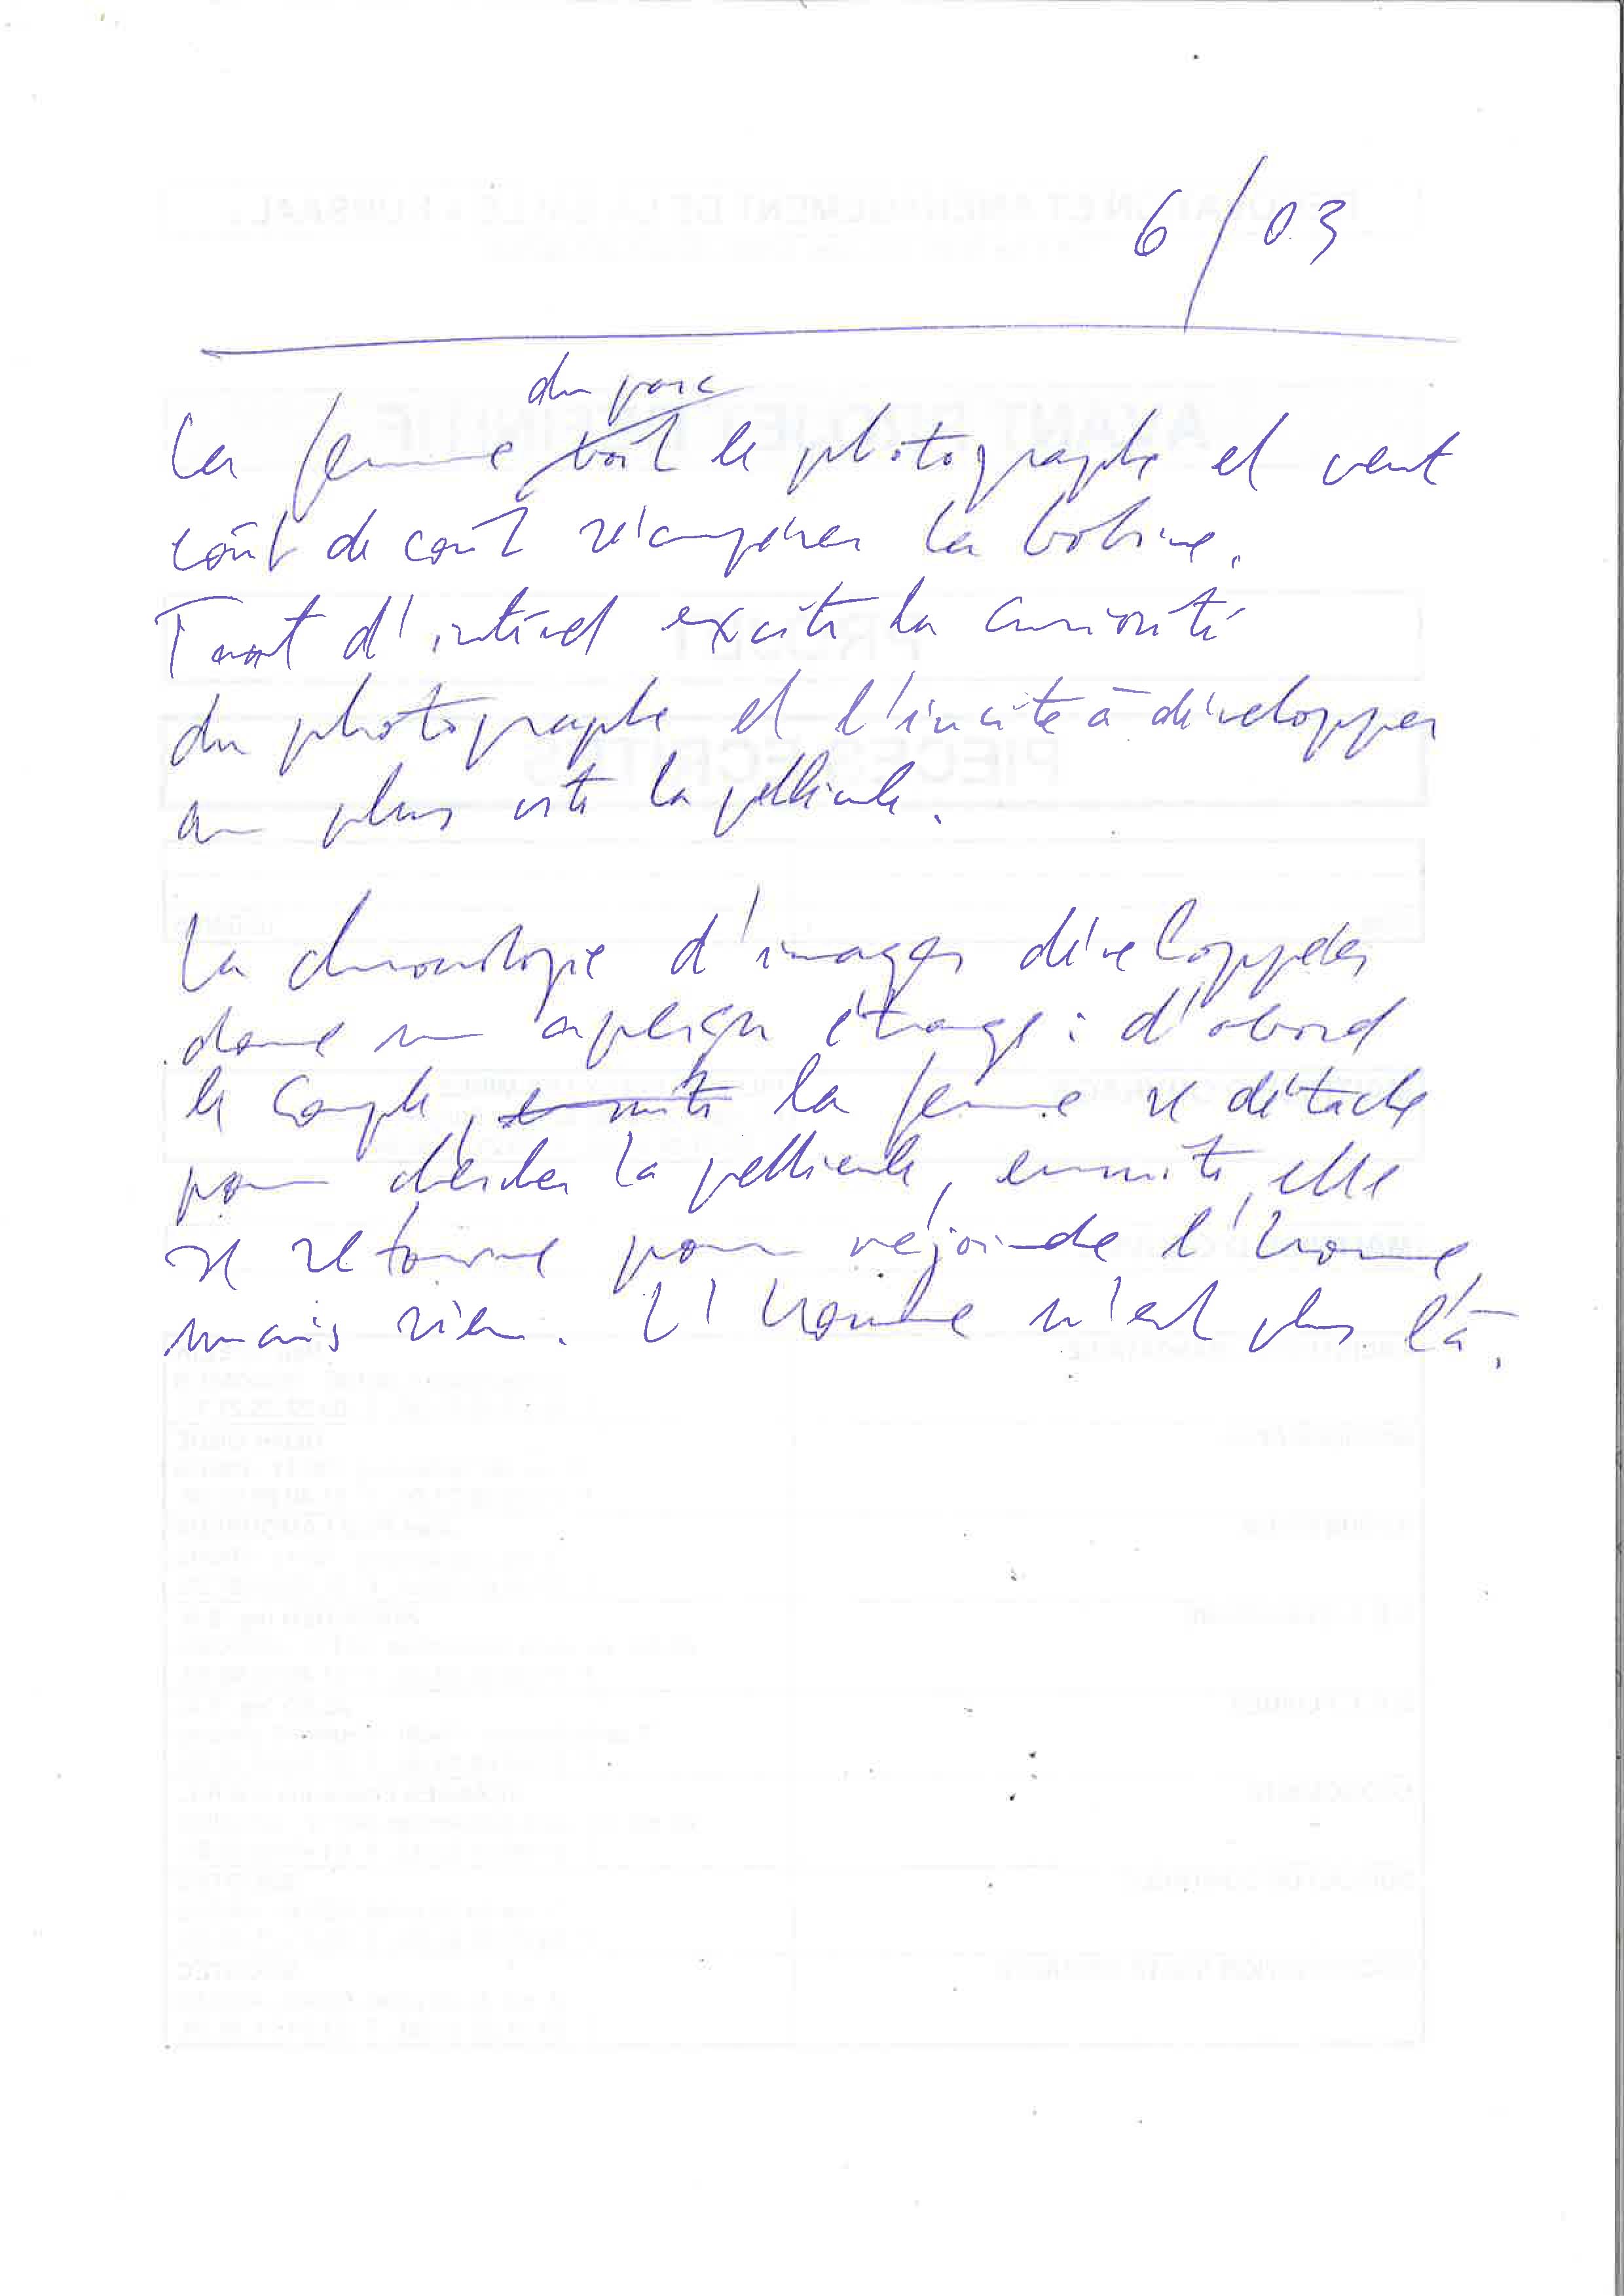 6/03
du parc
La femme voit le photographe et veut
coût de coût récupérer la bobine.
Tant d'intéret excite la curiosité
du photographe et l'incite à développer
au plus vite la pellicule.
La chronologie d'images développées
donne un étrange : d'abord
le couple, ensuite la femme se détache
pour chercher la pellicule, ensuite, elle
se retourne pour réjoindre l'homme,
mais rien. L'homme n'est plus là.